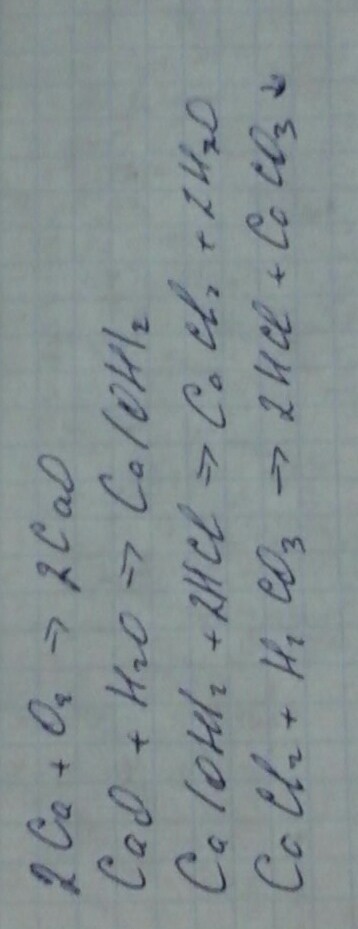 2Ca + O₂ => 2CaO
CaO + H₂O => Ca(OH)₂
Ca(OH)₂ + 2HCl => CaCl₂ + 2H₂O
CaCl₂ + H₂CO₃ => 2HCl + CaCO₃↓